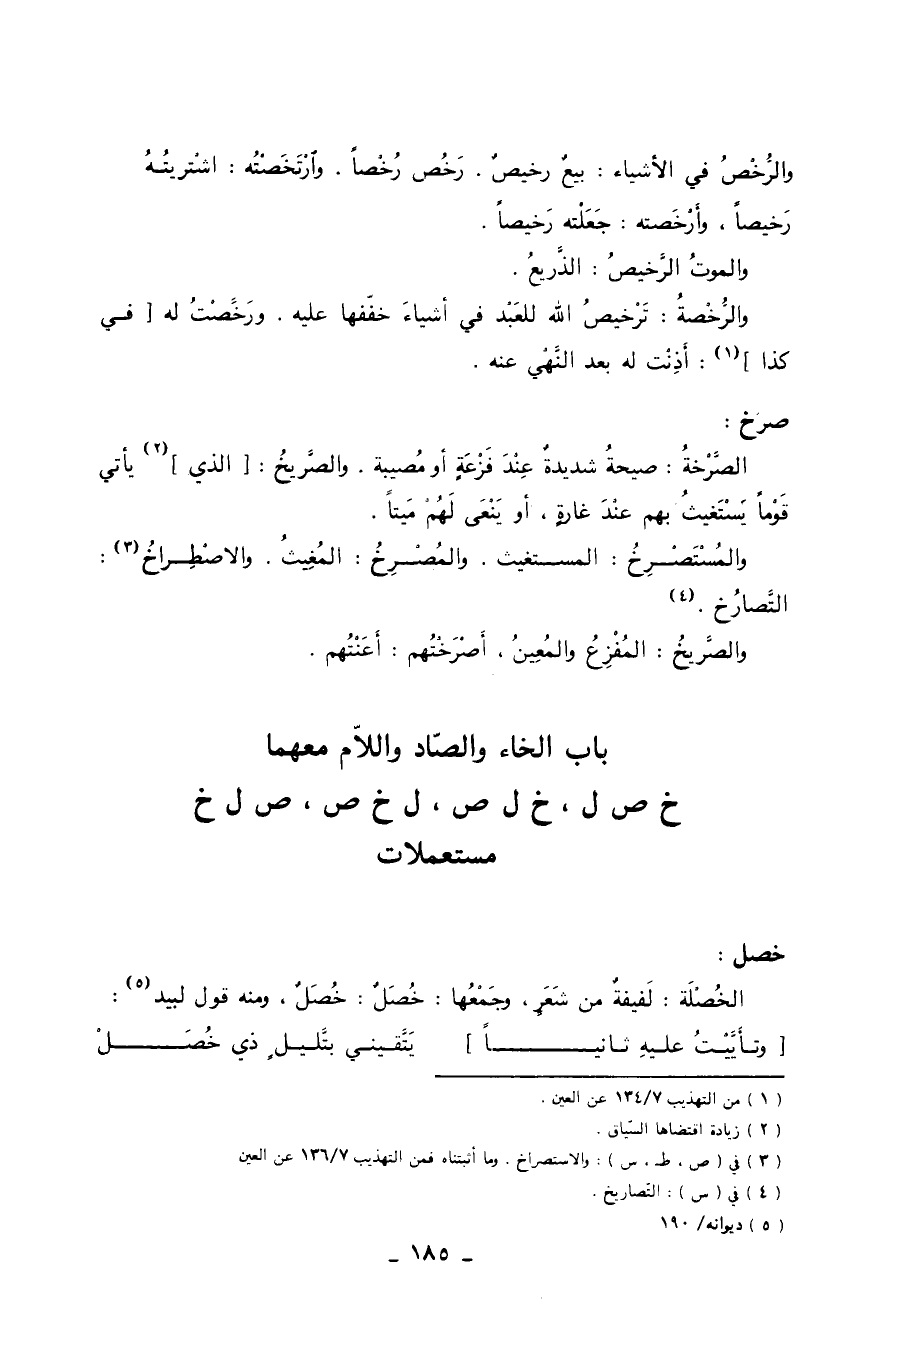 والرُّخْصُ في الأشياء : بيعٌ رخيصٌ . رَخُص رُخْصاً . وٱرْتَخَصْتُه : اشتريتُـهُ
رَخيصاً ، وأَرْخَصته : جَعَلْته رَخيصاً .
والموتُ الرَّخيصُ : الذَّريعُ .
والرُّخْصةُ : تَرْخيصُ الله للعَبْد في أشياءَ خفّفها عليه . ورَخَّصْتُ له [ فـي
كذا ](١) : أَذِنْت له بعد النَّهْي عنه .
صرَخ :
الصَّرْخةُ : صيحةُ شديدةٌ عِنْدَ فَزْعَةٍ أو مُصيبة . والصَّريخُ : [ الذي ](٢) يأتي
قَوْماً يَسْتَغيثُ بهم عنْدَ غارةٍ ، أو يَنْعَى لَهُمْ مَيتاً .
والمُسْتَصْـرِخُ : المستغيث . والمُصْـرِخُ : المُغِيثُ . والاصْطِـراخُ(٣) :
التَّصارُخ .(٤)
والصَّريخُ : المُفْزِعُ والمُعِينُ ، أَصرَخْتُهم : أَعَنْتُهم .
باب الخاء والصّاد واللاّم معهما
خ ص ل ، خ ل ص ، ل خ ص ، ص ل خ
مستعملات
خصل :
الخُصْلَة : لَفيفةٌ من شَعَرٍ ، وجَمْعُها : خُصَلٌ : خُصَلٌ ، ومنه قول لبيد(٥) :
[ وتـأَيَّيْـتُ عليـهِ ثـانيـــاً ] يَتَّقـينـي بتَّليـلٍ ذي خُصَــــلْ
( ١ ) من التهذيب ١٣٤/٧ عن العين .
( ٢ ) زيادة اقتضاها السّياق .
( ٣ ) في ( ص ، ط ، س ) : والاستصراخ . وما أثبتناه فمن التهذيب ١٣٦/٧ عن العين
( ٤ ) في ( س ) : التّصاريخ .
( ٥ ) ديوانه/ ١٩٠
ـ ١٨٥ ـ